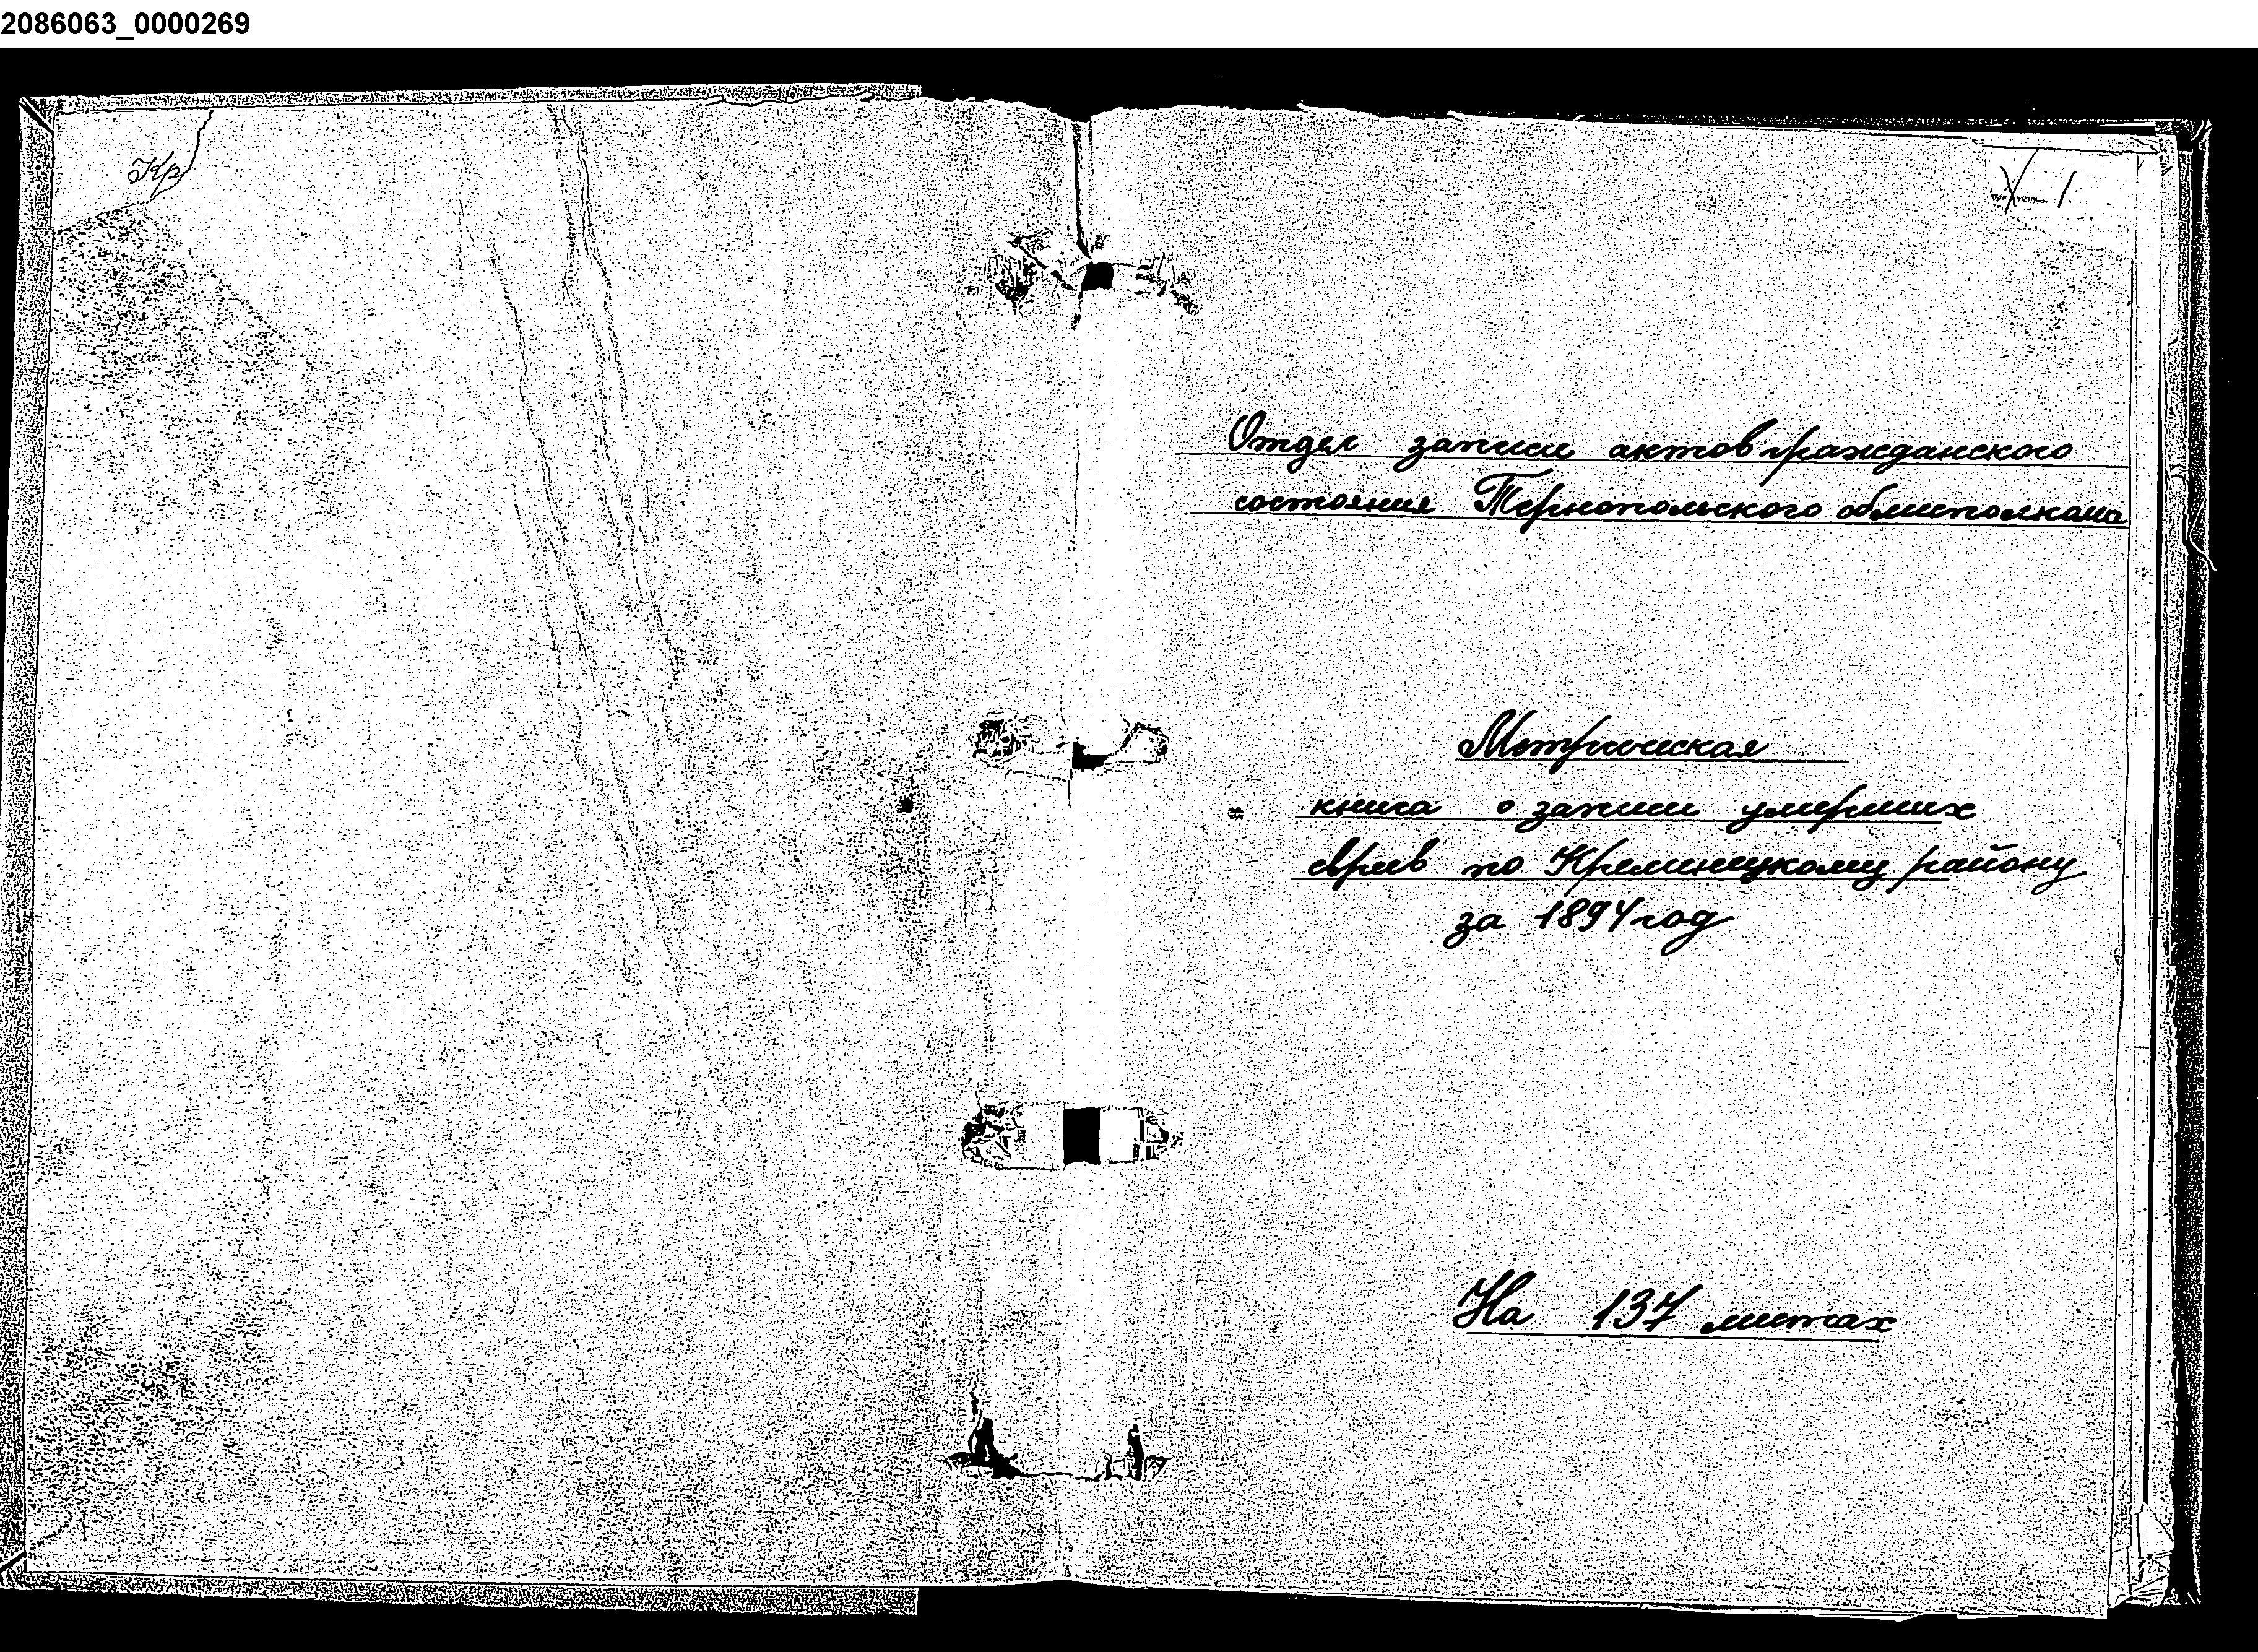 2086063_0000269
Кр
1
Отдел записи актов гражданского
состояния Тернопольского облисполкома
Метрическая
книга о записи умерших
евреев по Кременецкому району
за 1894 год
На 137 листах